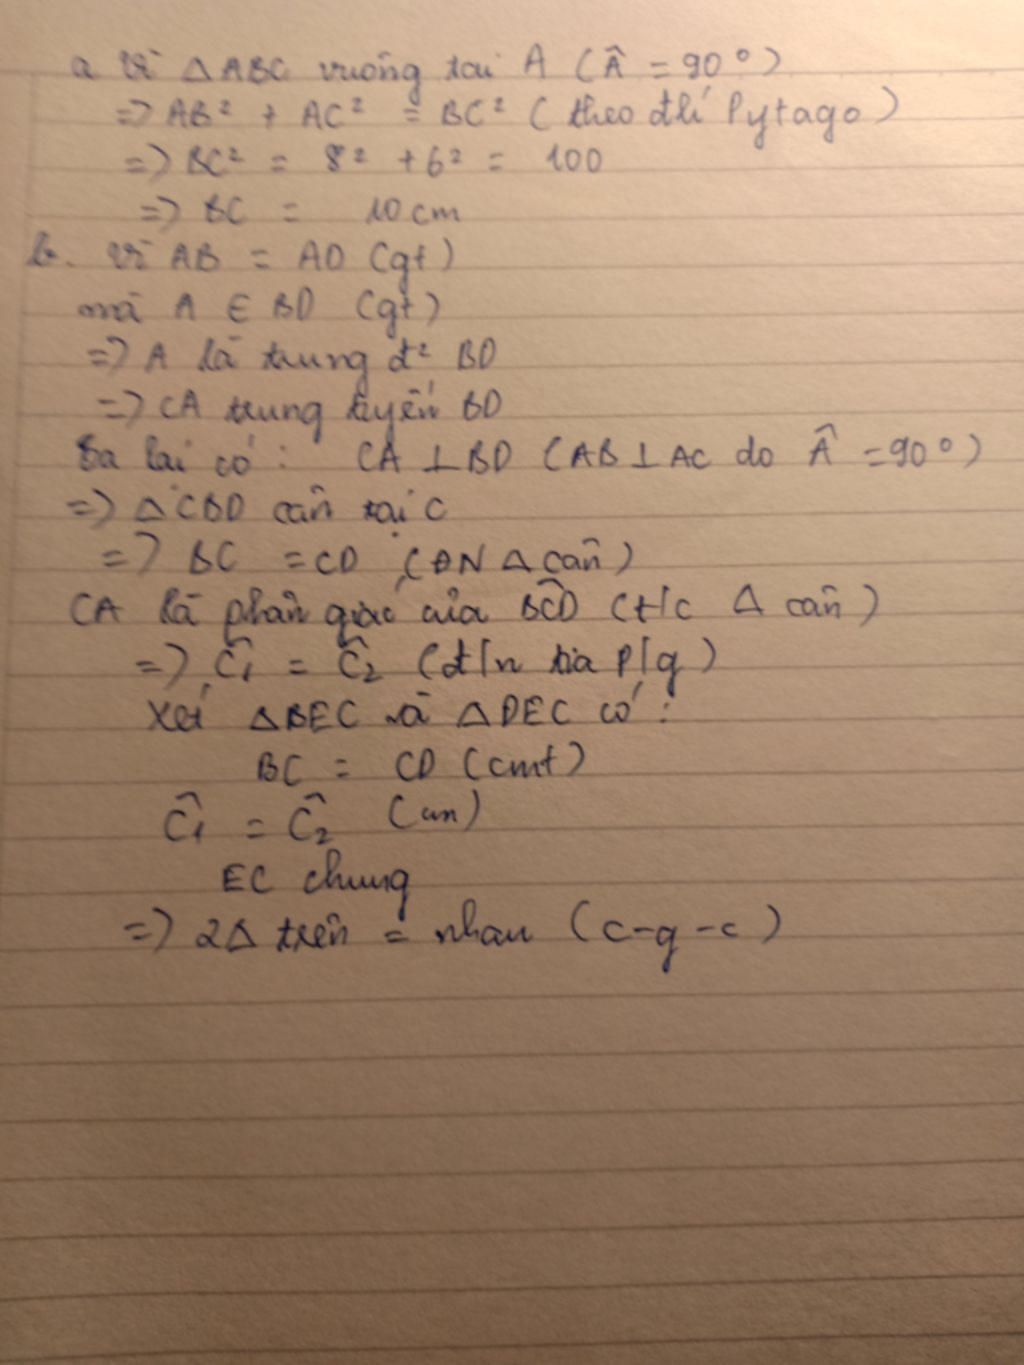 a. Vì ΔABC vuông tại A (Â = 90°)
=> AB² + AC² = BC² (theo đlí Pytago)
=> BC² = 8² + 6² = 100
=> BC = 10 cm
b. Vì AB = AD (gt)
mà A ∈ BD (gt)
=> A là trung đ² BD
=> CA trung tuyến BD
Ta lại có: CA ⊥ BD (AB ⊥ AC do Â = 90°)
=> ΔCBD cân tại C
=> BC = CD (ĐN Δ cân)
CA là phân giác của BĈD (t/c Δ cân)
=> Ĉ1 = Ĉ2 (đ/n tia p/g)
Xét ΔBEC và ΔDEC có:
BC = CD (cmt)
Ĉ1 = Ĉ2 (cm)
EC chung
=> 2Δ trên = nhau (c-g-c)